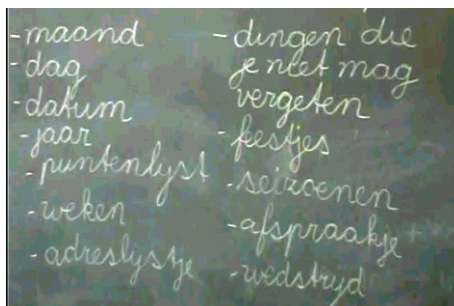 - maand
- dag
- datum
- jaar
- puntenlijst
- weken
- adreslijstje
- dingen die
je niet mag
vergeten
- feestjes
- seizoenen
- afspraakje
- wedstrijd